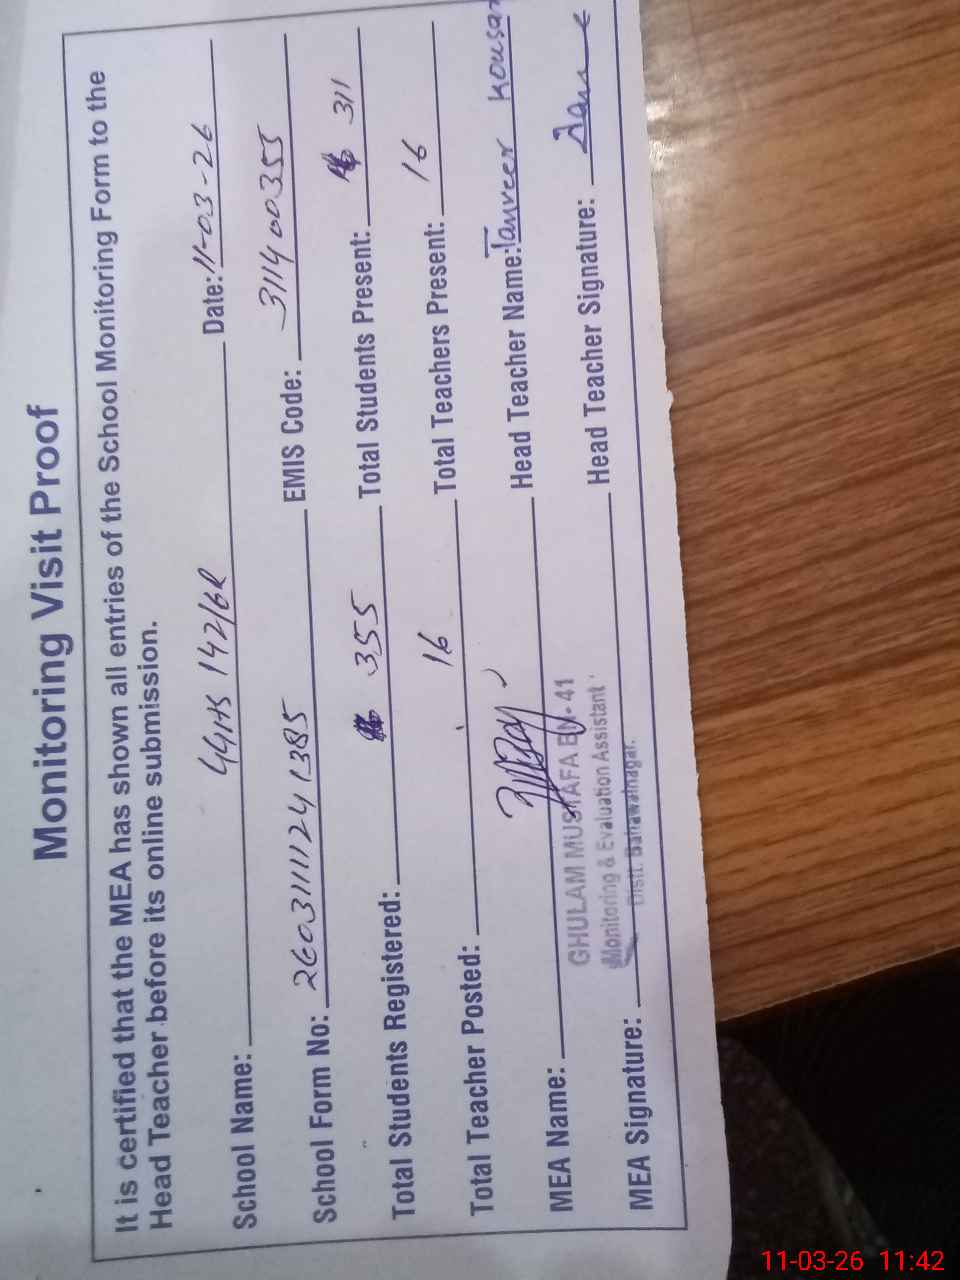 Monitoring Visit Proof
It is certified that the MEA has shown all entries of the School Monitoring Form to the
Head Teacher before its online submission.
School Name: GGHS 142/6R Date: 11-03-26
School Form No: 26031111241385 EMIS Code: 311400355
Total Students Registered: 355 Total Students Present: 311
Total Teacher Posted: 16 Total Teachers Present: 16
MEA Name: Head Teacher Name: Tanveer Kousar
GHULAM MUSTAFA BN-41
Monitoring & Evaluation Assistant
Distt. Bahawalnagar.
MEA Signature: Head Teacher Signature:
11-03-26 11:42